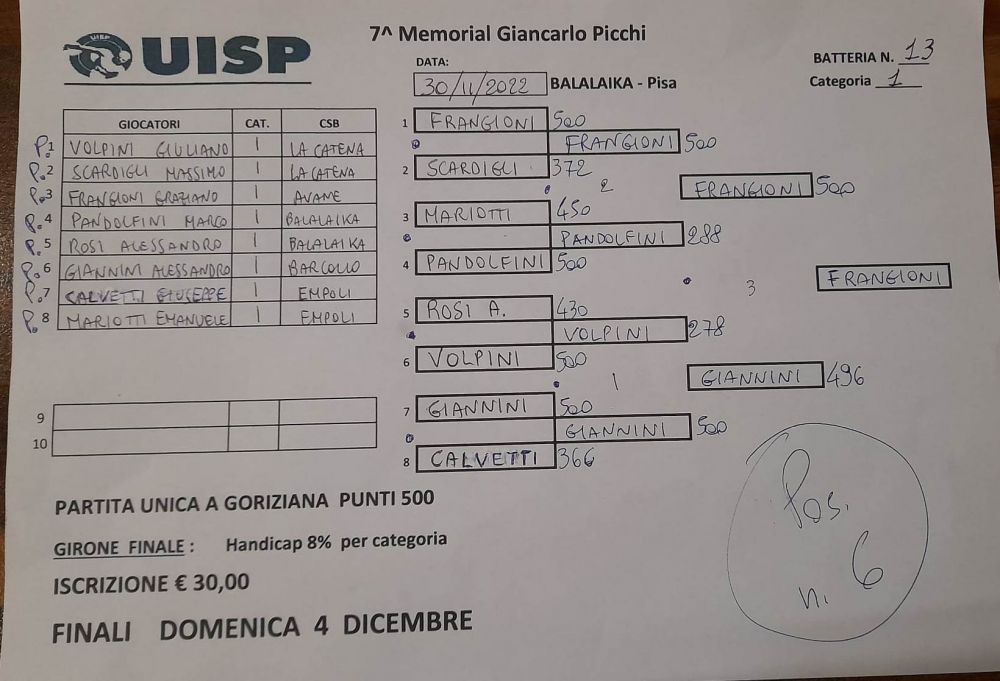 UISP
UISP
7^ Memorial Giancarlo Picchi
DATA:
30/11/2022 BALALAIKA - Pisa
BATTERIA N. 13
Categoria 1
GIOCATORI CAT. CSB
P.1 VOLPINI GIULIANO 1 LA CATENA
P.2 SCARDIGLI MASSIMO 1 LA CATENA
P.3 FRANGIONI GRAZIANO 1 AVANE
P.4 PANDOLFINI MARCO 1 BALALAIKA
P.5 ROSI ALESSANDRO 1 BALALAIKA
P.6 GIANNINI ALESSANDRO 1 BARCOLLO
P.7 CALVETTI GIUSEPPE 1 EMPOLI
P.8 MARIOTTI EMANUELE 1 EMPOLI
9
10
1 FRANGIONI 500
FRANGIONI 500
2 SCARDIGLI 372
2 FRANGIONI 500
3 MARIOTTI 450
PANDOLFINI 288
4 PANDOLFINI 500
3 FRANGIONI
5 ROSI A. 430
VOLPINI 278
6 VOLPINI 500
1 GIANNINI 496
7 GIANNINI 500
GIANNINI 500
8 CALVETTI 366
PARTITA UNICA A GORIZIANA PUNTI 500
GIRONE FINALE : Handicap 8% per categoria
ISCRIZIONE € 30,00
FINALI DOMENICA 4 DICEMBRE
Pos.
n. 6